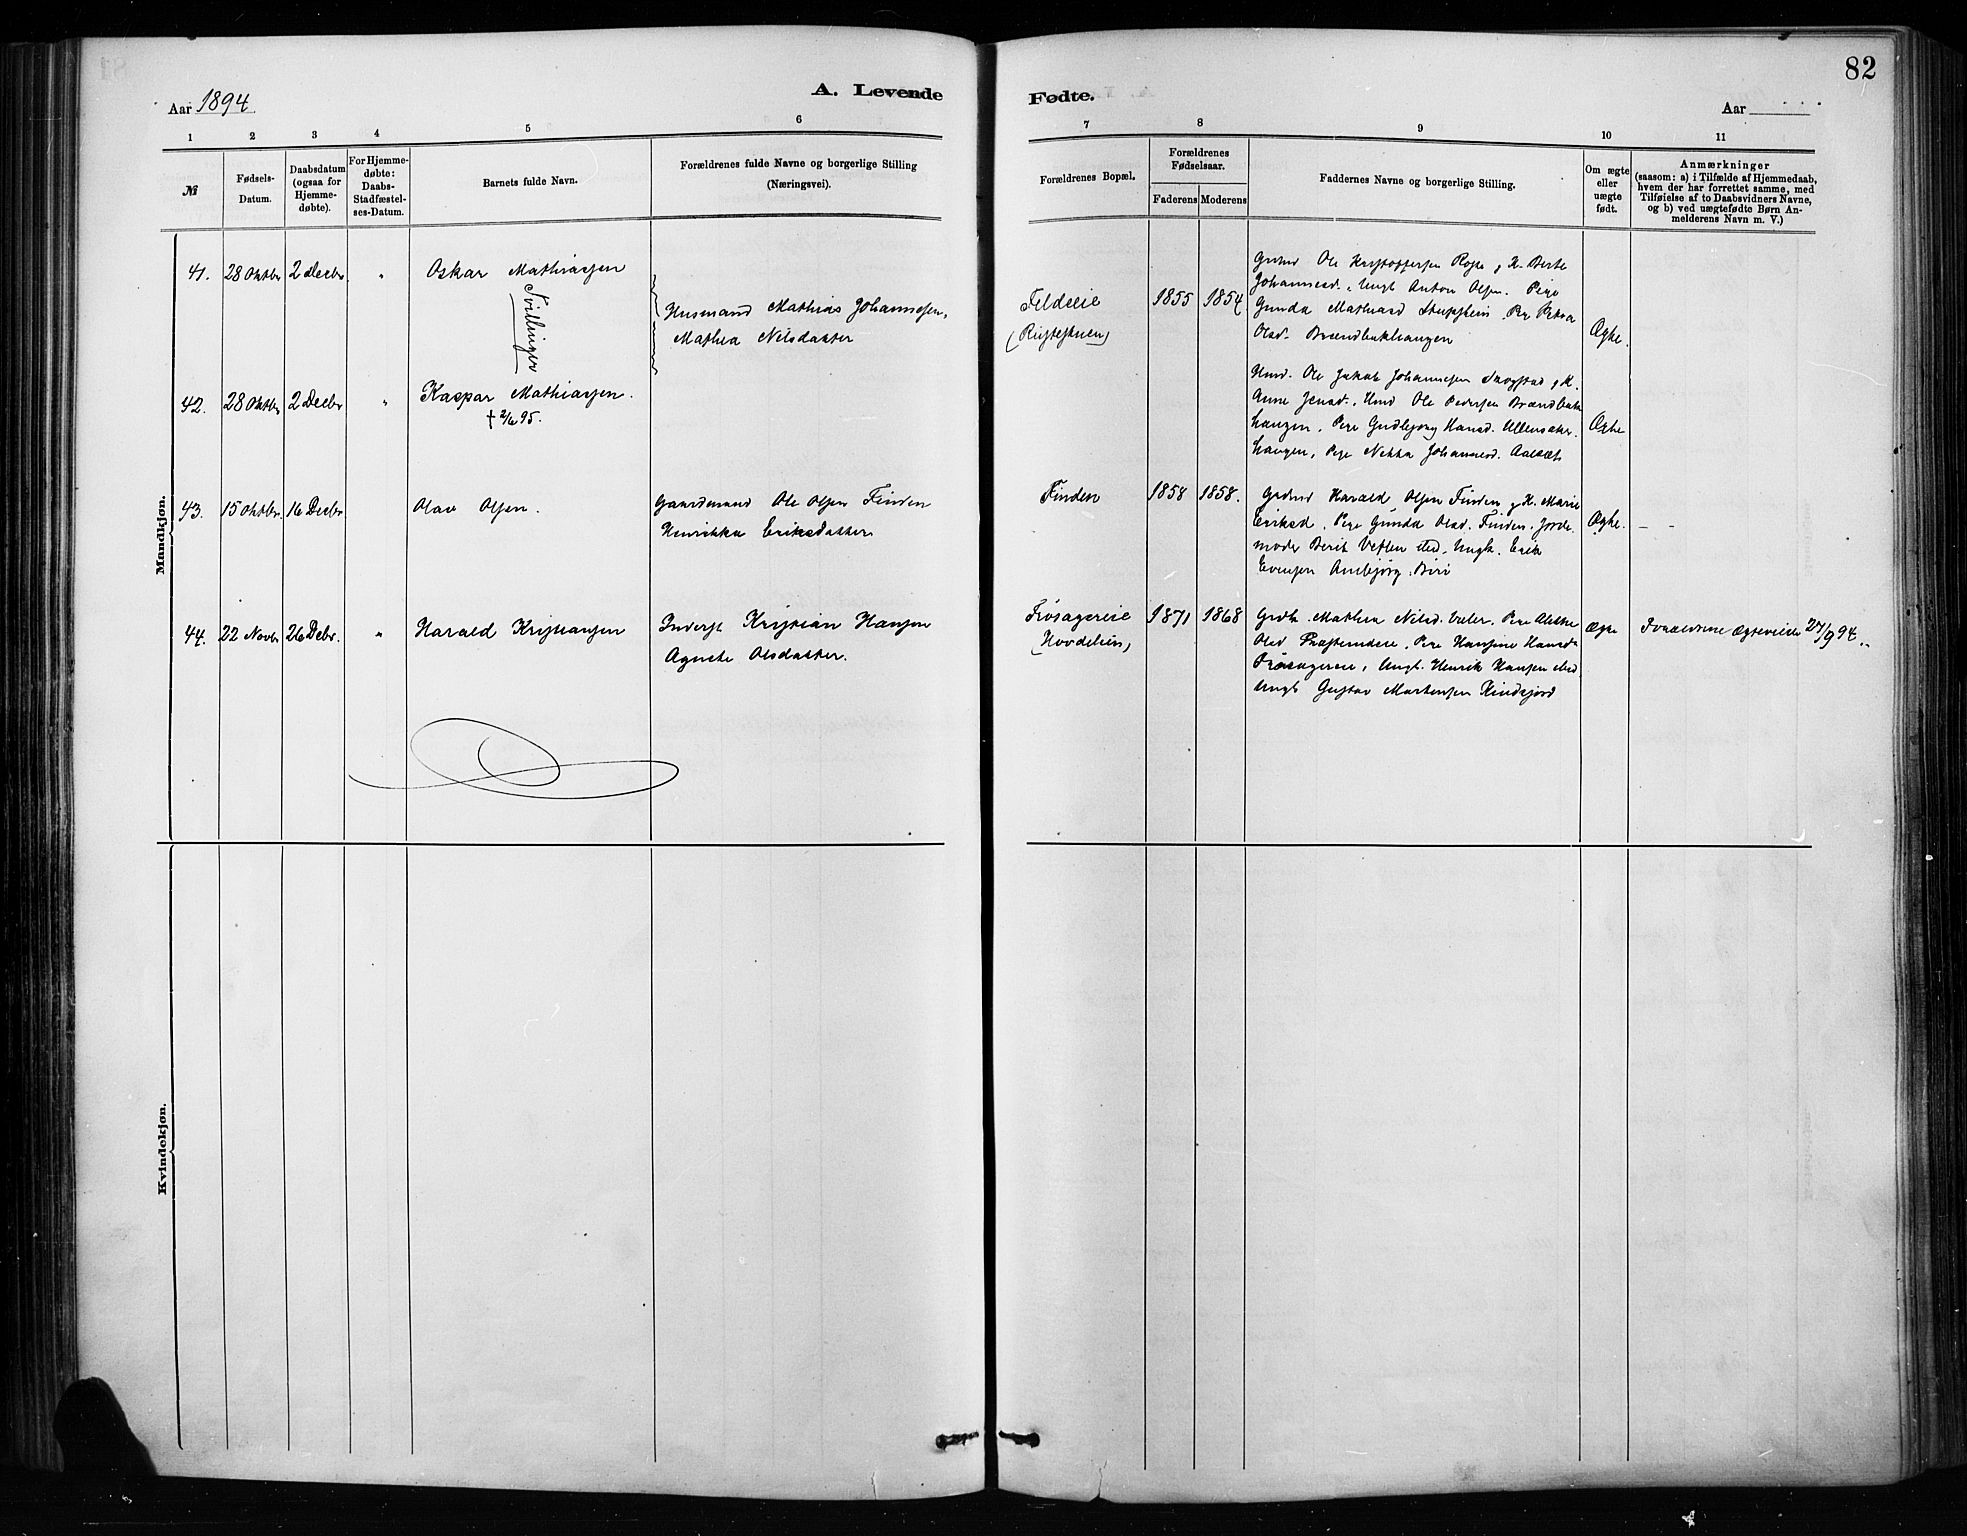 82
Aar 1894.
A. Levende
Fødte.
Aar
1 2 3 4 5 6
7 8 9 10 11
№
Fødsels-
Datum.
Daabsdatum
(ogsaa for
Hjemme-
døbte).
For Hjemme-
døbte:
Daabs-
Stadfæstel-
ses-Datum.
Barnets fulde Navn.
Forældrenes fulde Navne og borgerlige Stilling
(Næringsvei).
Forældrenes Bopæl.
Forældrenes
Fødselsaar.
Faderens Moderens
Faddernes Navne og borgerlige Stilling.
Om ægte
eller
uægte
født.
Anmærkninger
(saasom: a) i Tilfælde af Hjemmedaab,
hvem der har forrettet samme, med
Tilføielse af to Daabsvidners Navne,
og b) ved uægtefødte Børn An-
melderens Navn m. V.)
Mandkjøn.
41. 28 Oktbr 2 Decbr " Oskar Mathiassen
Tvillinger
Husmand Mathias Johannesen,
Mathea Nilsdatter
Feldeie
1855 1854
Ole Kristoffersen K. Berte
Johannesd., Ungk Anton Olsen. Pige
Gunda Pige Petra
Olsd. Brændbakhaugen
Ægte.
42. 28 Oktbr 2 Decbr " Kaspar Mathiassen.
† 2/6 95.
Ole Jakob Johannesen Skogstad, K.
Anne Jensd., Ole Pedersen Brændbak
haugen, Pige Gudbjørg Hansd. Ullensaker
haugen, Pige Johannesd.
Ægte
43. 15 Oktbr. 16 Decbr Olav Olsen.
Gaardmand Ole Olsen Finden
Henrikka Eriksdatter
Finden 1858 1858.
Harald Olsen Finden, K. Marie
Eriksd, Pige Gunda Olsd. Finden. Jorde
moder Berit sted, Ungk. Erik
Evensen Biri
Ægte. - -
44. 22 Novbr 26 Debr. " Harald Kristiansen
Inderst Kristian Hansen
Agnete Olsdatter.
Frøsagereie
(Hovdelien)
1871 1868
Mathea Nilsd. Pige
Olsd Pige Hansine Hansd
Frøsagereie, Ungk. Henrik Hansen sted
Ungk Gustav Martinsen Kindsjord
Ægte
Forældrene Ægteviede 27/9 94.
Kvindekjøn.